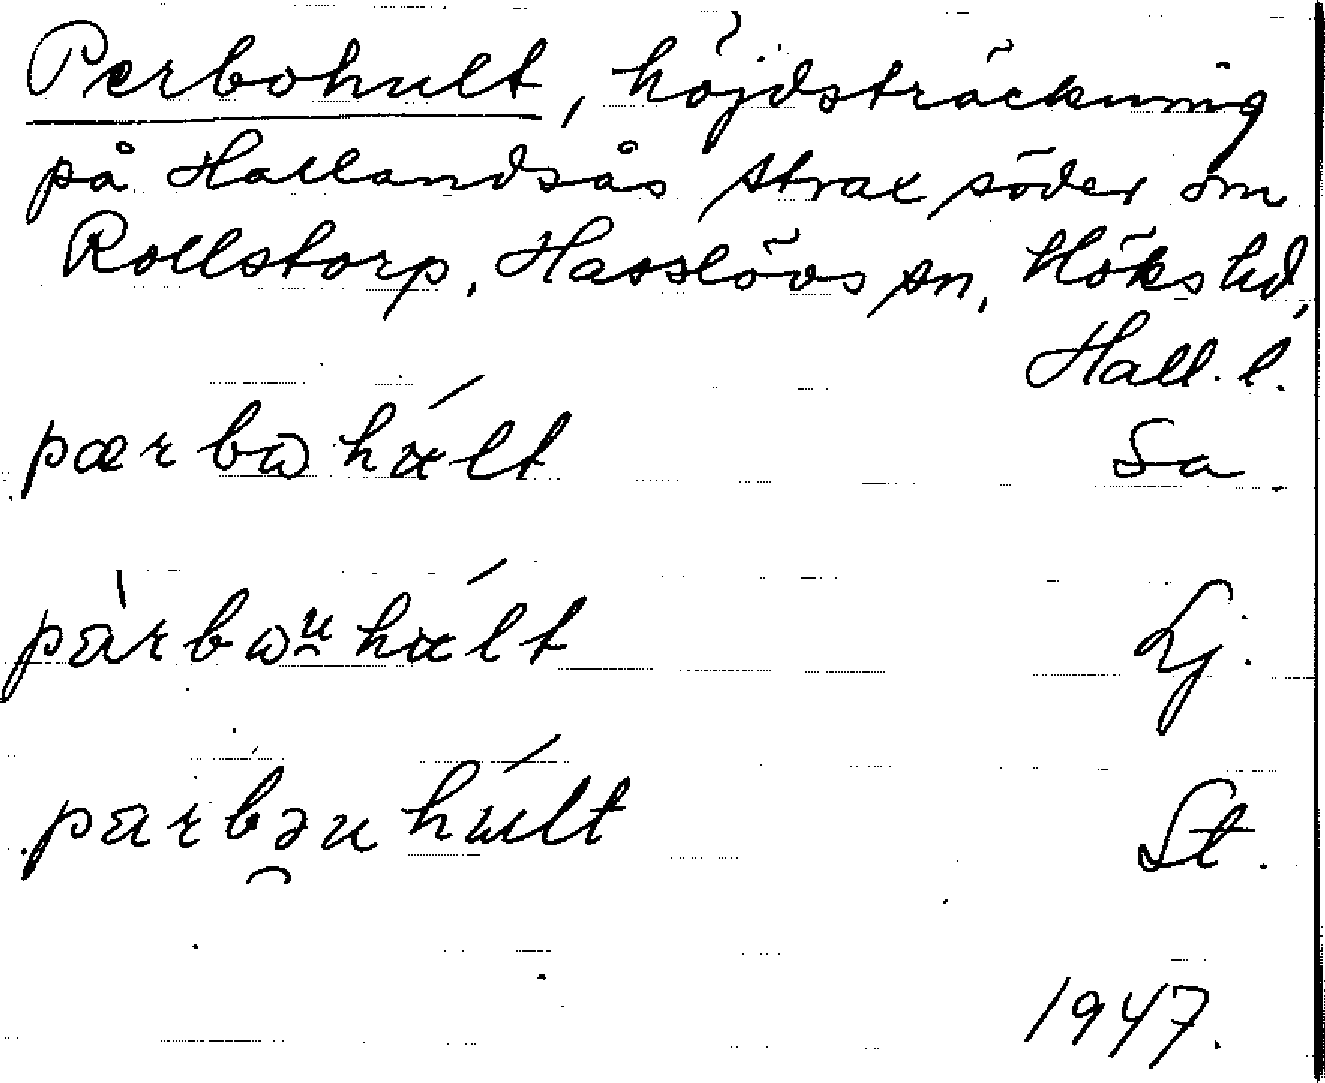 Perbohult, höjdsträckning
på Hallandsås strax söder om
Rollstorp, Hasslövs sn, Höks hd,
Hall. l.
pærbωhált Sa.
pàrbωu̯hált Lj.
parbəu̯húlt St.
1947.